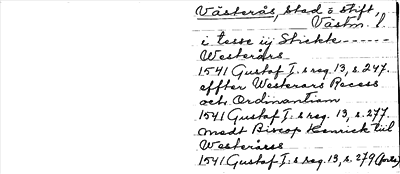 Västerås, stad o stift,
Västm. l
i tesse iij Stickte ------
Westerårs
1541 Gustaf I:s reg. 13, s. 247.
effter Westerars Recess
och Ordinantiam
1541 Gustaf I:s reg. 13, s. 277.
medt Biscop Henrick till
Westerårss
1541 Gustaf I:s reg. 13, s. 279 (forts)